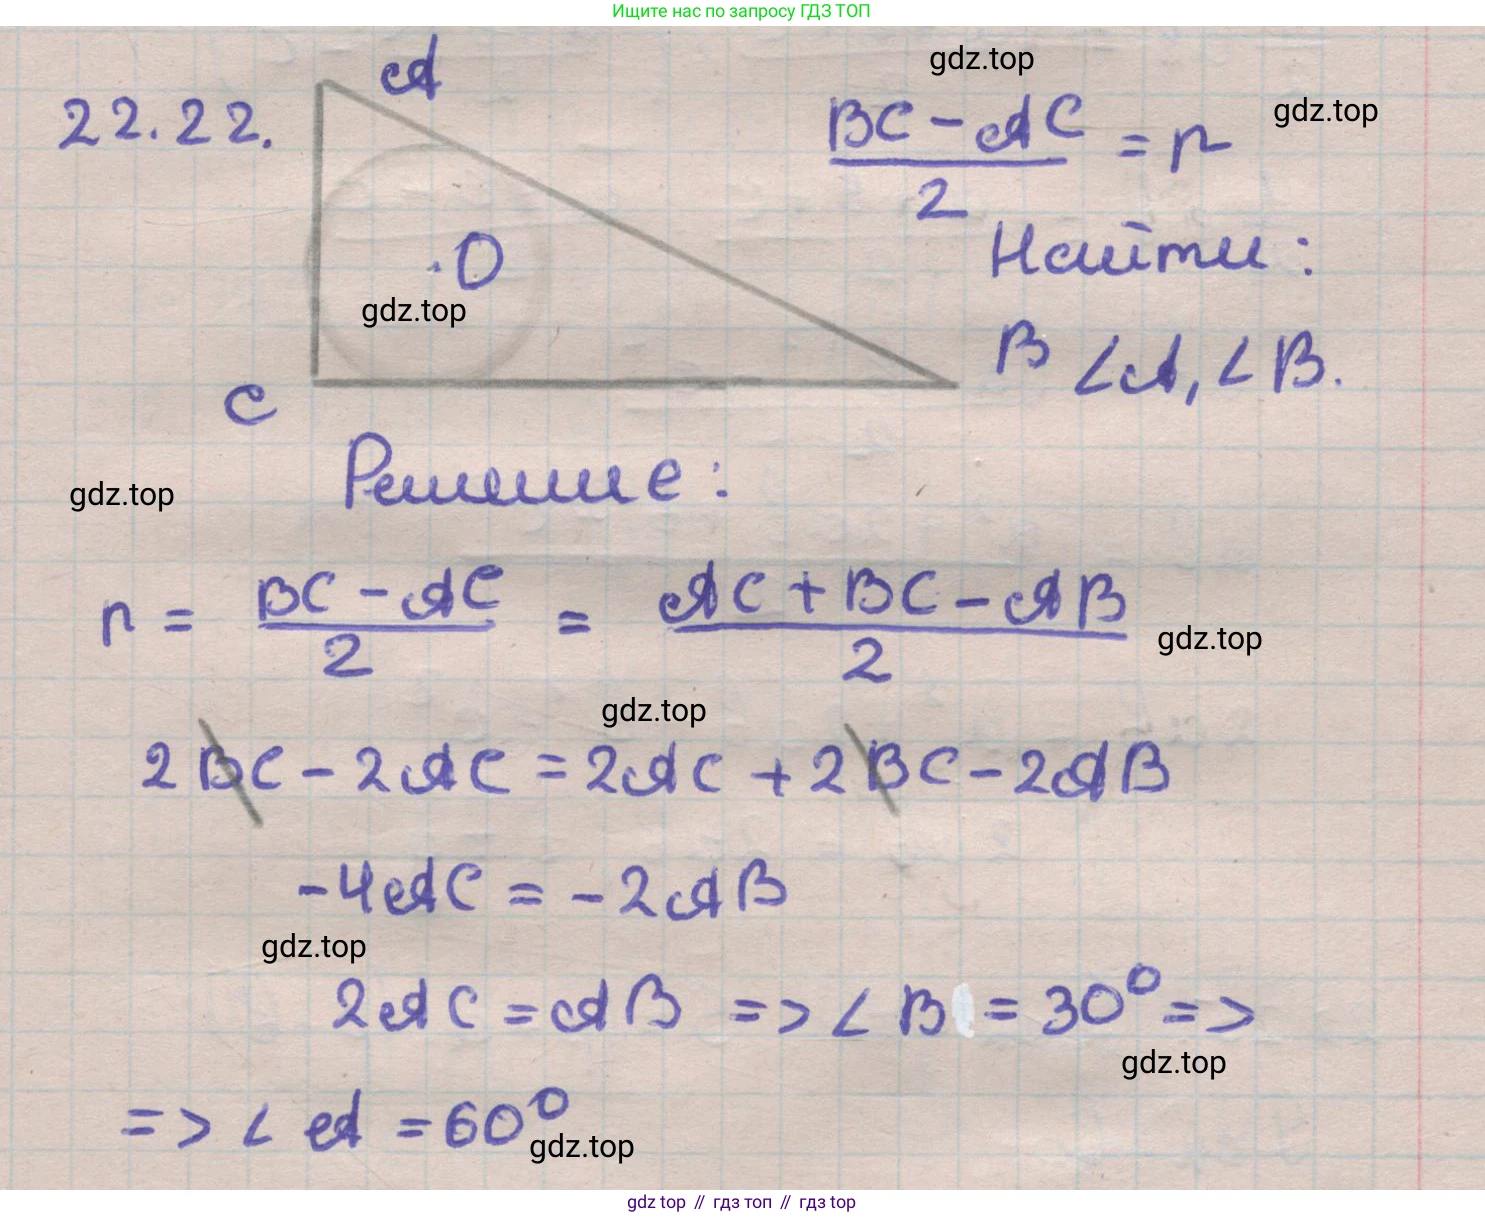 Ищите нас по запросу ГДЗ ТОП
22.22.
A
gdz.top
gdz.top
(BC - AC)/2 = r
O
gdz.top
Найти:
∠A, ∠B.
B
C
Решение:
gdz.top
r = (BC - AC)/2 = (AC + BC - AB)/2
gdz.top
gdz.top
2BC - 2AC = 2AC + 2BC - 2AB
-4AC = -2AB
gdz.top
2AC = AB => ∠B = 30° =>
gdz.top
=> ∠A = 60°
gdz.top
gdz top // гдз топ // gdz top